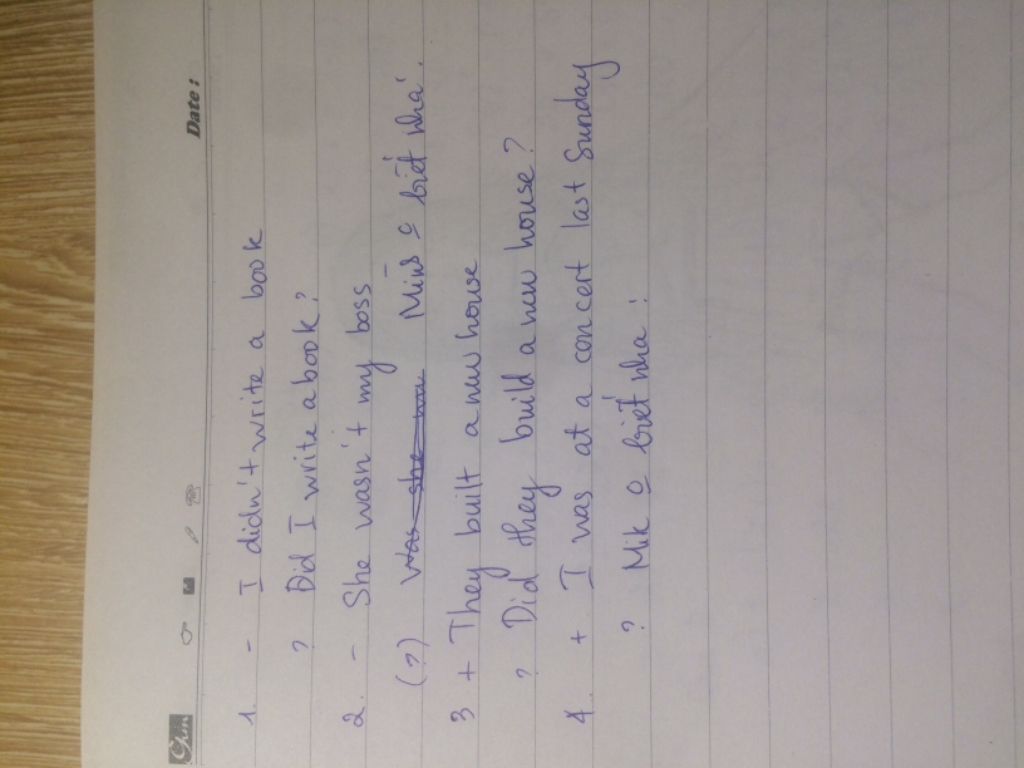 Date:
1. - I didn't write a book
? Did I write a book?
2. - She wasn't my boss
(?) Was she Mình o biết nha.
3 + They built a new house
? Did they build a new house?
4 + I was at a concert last Sunday
? Mik o biết nha!